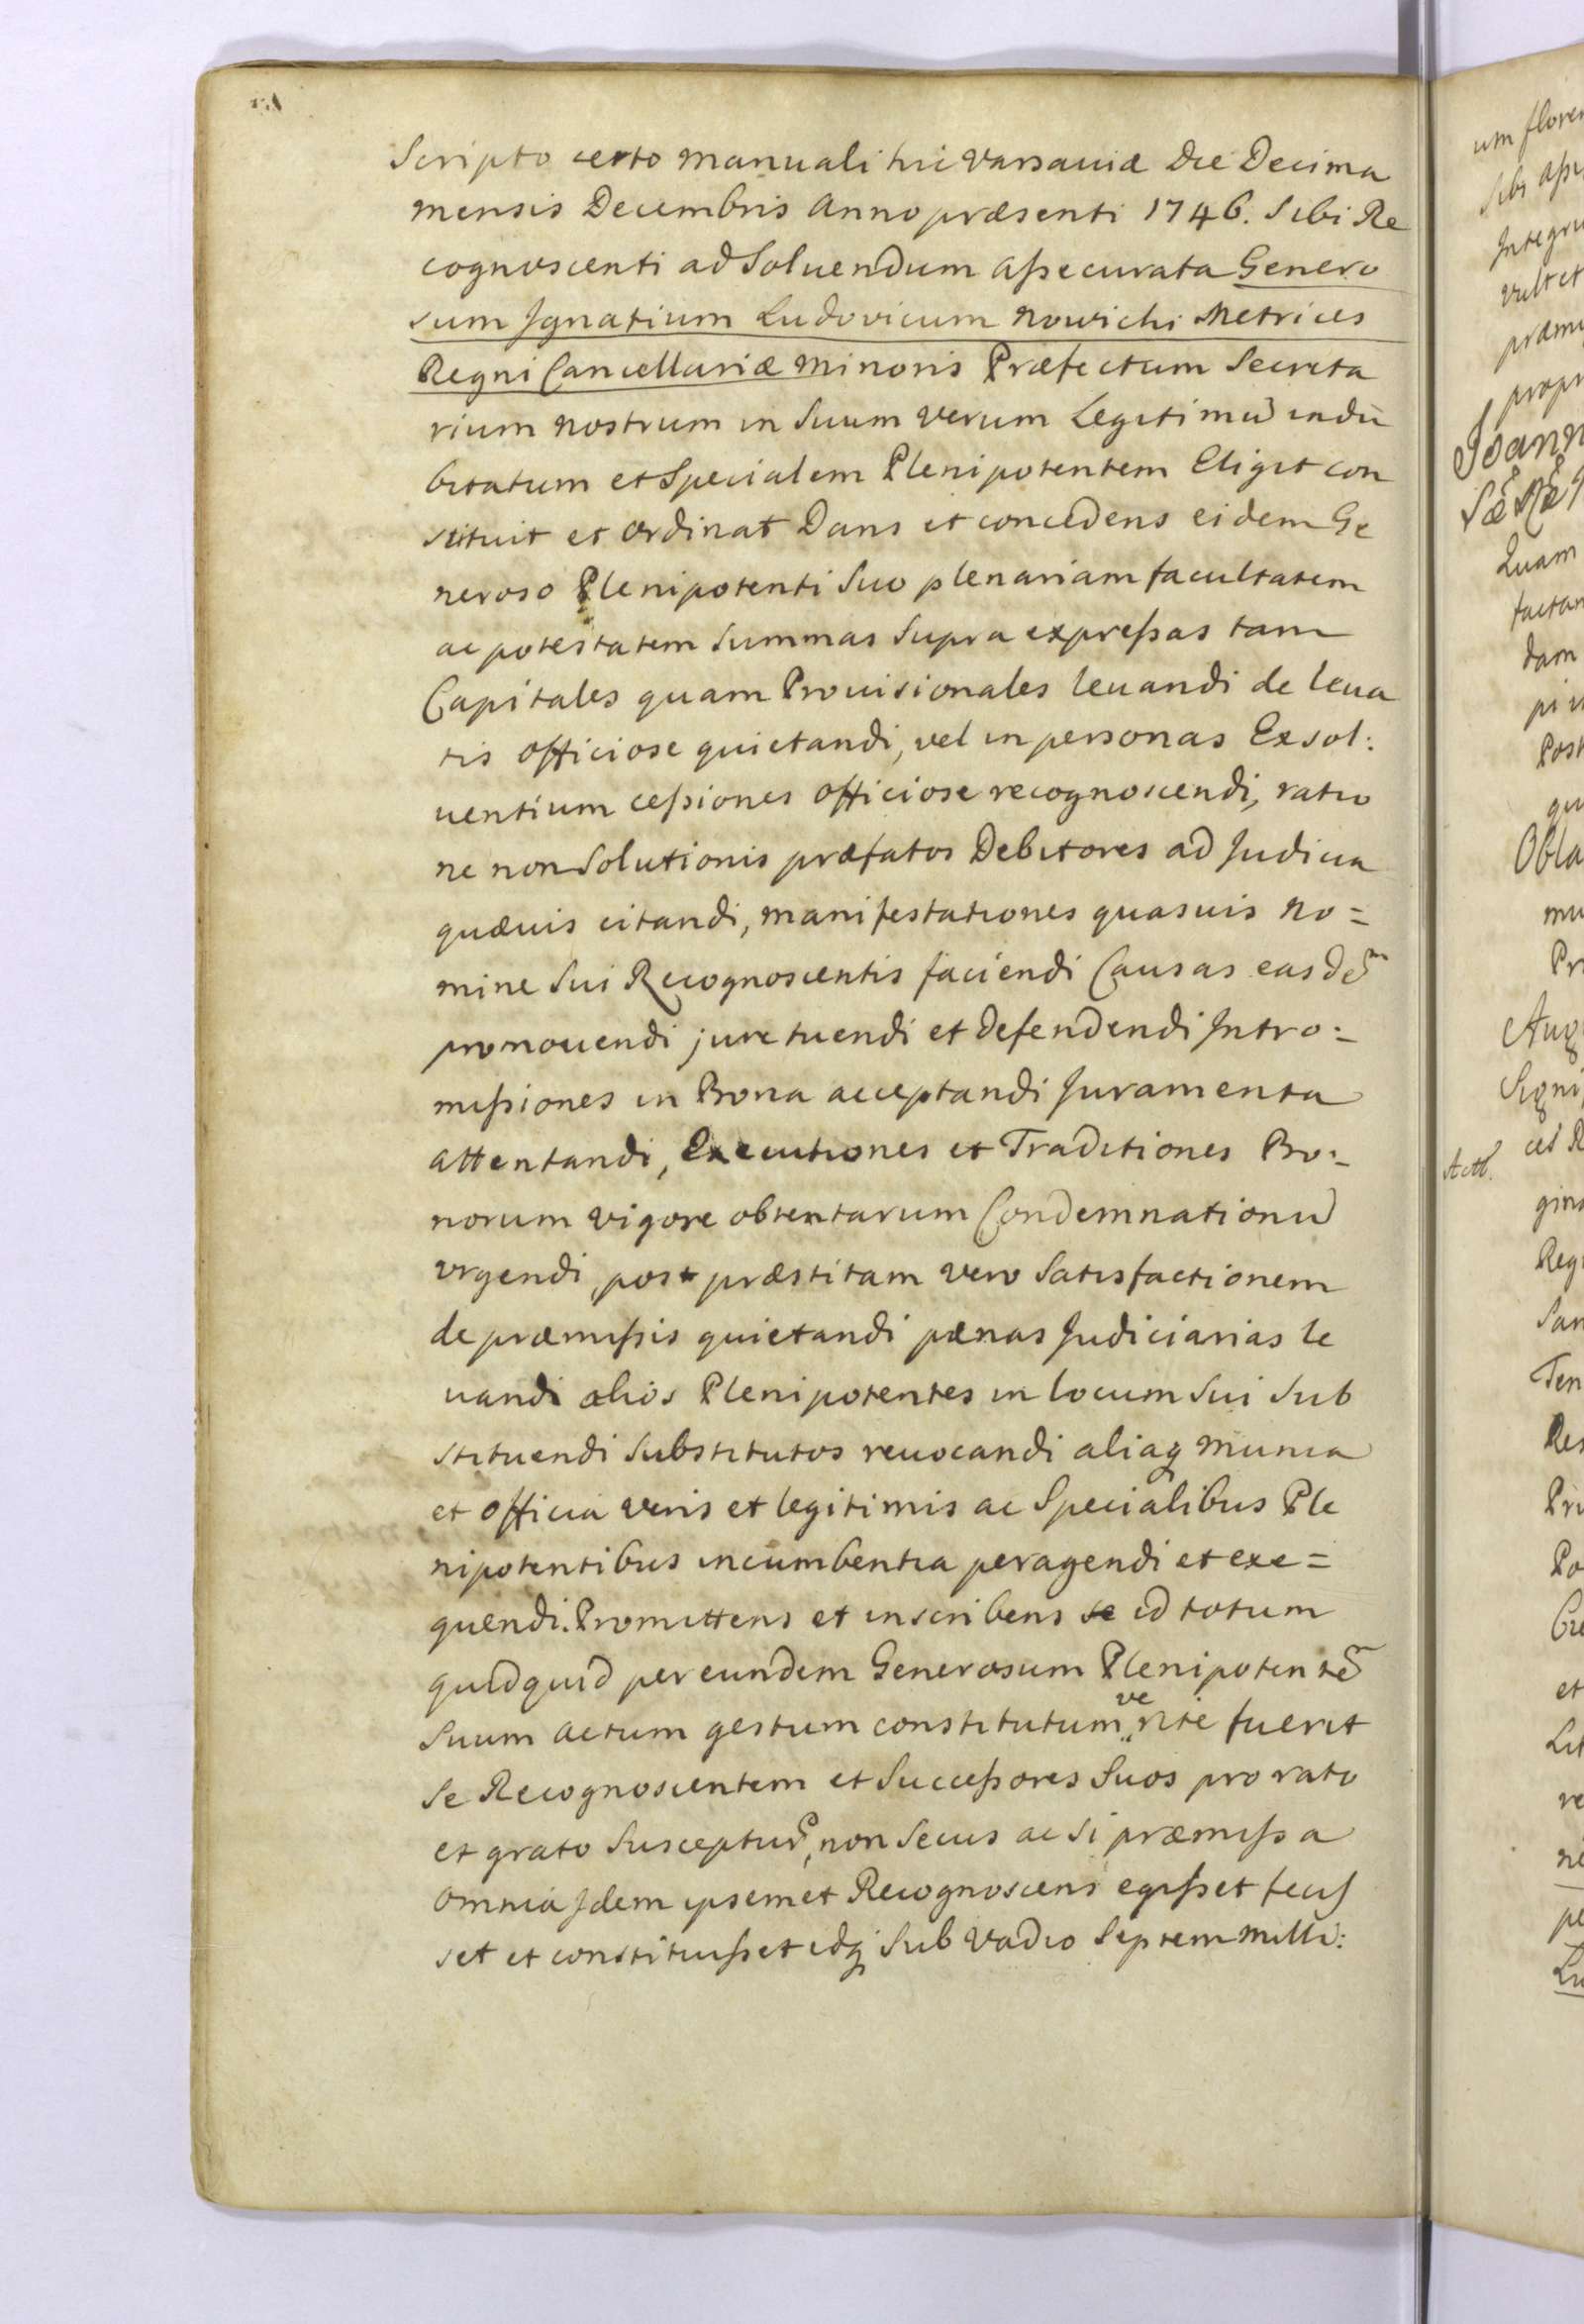 Scripto certo manuali hic Varsaviæ Die Decima
mensis Decembris Anno præsenti 1746. Sibi Re
cognoscenti ad Soluendum aſsecurata Genero
sum Jgnatium Ludovicum Nowichi Metrices
Regni Cancellariæ Minoris Præfectum Secreta
rium nostrum in Suum verum Legitimū indu
bitatum et Specialem Plenipotentem Eligit con
stituit et Ordinat Dans et concedens eidem Ge
neroso Plenipotenti Suo plenariam facultatem
ac potestatem Summas Supra expreſsas tam
Capitales quam Provisionales leuandi de leua
tis officiose quietandi, vel in personas Exsol:
uentium ceſsiones officiose recognoscendi, ratio
ne non Solutionis præfatos Debitores ad Judicia
quæuis citandi, manifestationes quasuis No=
mine Sui Recognoscentis faciendi Causas easdē
promouendi jure tuendi et defendendi Jntro=
miſsiones in Bona acceptandi Juramenta
attentandi, Executiones et Traditiones Bo=
norum vigore obtentarum Condemnationū
vrgendi, post præstitam vero Satisfactionem
de præmiſsis quietandi pænas Judiciarias le
uandi alios Plenipotentes in locum Sui Sub
stituendi Substitutos reuocandi aliaq munia
et officia veris et legitimis ac Specialibus Ple
nipotentibus incumbentia peragendi et exe=
quendi. Promittens et inscribens se id totum
quidquid per eundem Generosum Plenipotentē
Suum actum gestum constitutum ve rite fuerit
Se Recognoscentem et Succeſsores Suos pro rato
et grato Susceptur̃, non Secus ac Si præmiſsa
omnia Jdem ipsemet Recognoscens egiſset feciſ
set et constituiſset idq Sub Vadio Septem Milli: